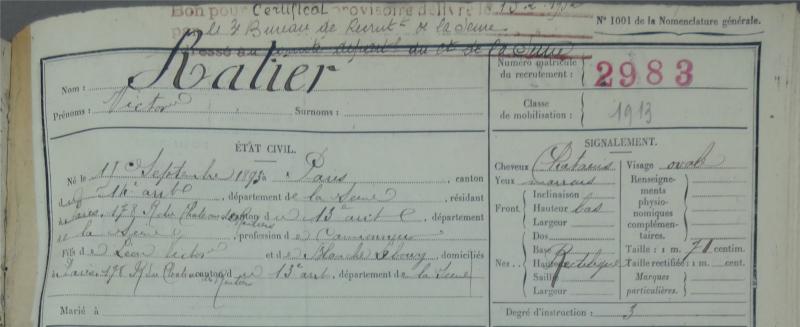 Bon pour Certificat provisoire délivré le 13
par le 3e Bureau de Recrutt de la Seine
N° 1001 de la Nomenclature générale.
de la Seine
Nom : Ratier
Prénoms : Victor Surnoms :
Numéro matricule du recrutement : 2983
Classe de mobilisation : 1913
ÉTAT CIVIL.
Né le 11 Septembre 1893 à Paris, canton
14e arrt, département de la Seine, résidant
à Paris, 178 R. du Chateau des Rentiers canton du 13e arrt, département
de la Seine, profession de Camionneur
Fils de Léon Victor et de Blanche, domiciliés
à Paris 178 R. du Chateau des Rentiers canton du 13e arrt, département de la Seine
Marié à
SIGNALEMENT.
Cheveux Chatains
Yeux marrons
Front. Inclinaison
Hauteur bas
Largeur
Nez. Dos
Base
Hauteur Rectiligne
Saillie
Largeur
Visage ovale
Renseignements physionomiques complémentaires.
Taille : 1 m. 71 centim.
Taille rectifiée : 1 m. cent.
Marques particulières.
Degré d'instruction : 3